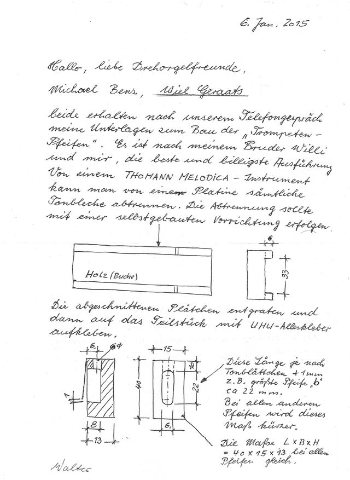 6. Jan. 2015
Hallo, liebe Drehorgelfreunde,
Michael Bens, Wiel Geraats
beide erhalten nach unserem Telefongespräch
meine Unterlagen zum Bau der „Trompeten-
Pfeifen". Es ist nach meinem Bruder Willi
und mir, die beste und billigste Ausführung
Von einem THOMANN MELODICA - Instrument
kann man von einem Platine sämtliche
Tonbleche abtrennen. Die Abtrennung sollte
mit einer selbstgebauten Vorrichtung erfolgen.
6
HOLZ (Buche)
33
Die abgeschnittenen Plätchen entgraten und
dann auf das Teilstück mit UHU-Alleskleber
aufkleben.
6
15
Diese Länge je nach
Tonblättchen + 1mm
z.B. größte Pfeife „b"
ca 22 mm.
Bei allen anderen
Pfeifen wird dieses
Maß kürzer.
40
22
1
8
6
13
Die Maße L x B x H
= 40 x 15 x 13 bei allen
Pfeifen gleich.
Walter